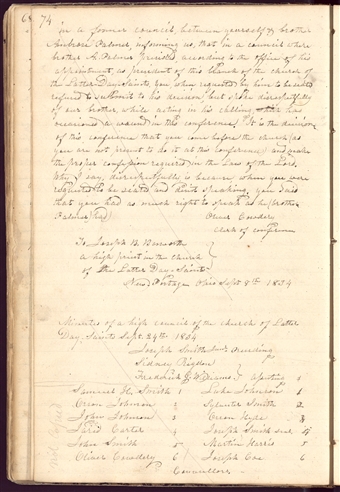 74
in a former council, between yourself & brother
Ambrose Palmer informing us, that in a council where
brother A. Palmer presided, according to the office of his
appointment, as president of this branch of the church of
the Latter Day Saints, you when requested by him to be seated
refused to submit to his decision, but spoke disrespectfully
of our brother while acting in his calling
occasioned a wound in this conference. It is the decision
of this conference that you come before the church (as
you are not present to do it at this conference) and make
the proper confession required in the Law of the Lord.
Why I say, disrespectfully is because when you were
requested to be seated and quit speaking, you said
that you had as much right to speak as he (brother
Palmer) had
Oliver Cowdery
Clerk of conference
To Joseph B. Bosworth
a high priest in the church
of the Latter Day Saints
New Portage Ohio Sept 8th 1834
Minutes of a high council of the church of Latter
Day Saints Sept. 24th 1834
Joseph Smith Jun. Presiding
Sidney Rigdon
Frederick G. Williams
Samuel H. Smith 1 Luke Johnson 1
Orson Johnson 2 Sylvester Smith 2
John Johnson 3 Orson Hyde 3
Jared Carter 4 Joseph Smith sen 4
John Smith 5 Martin Harris 5
Oliver Cowdery 6 Joseph Coe 6
Councillors